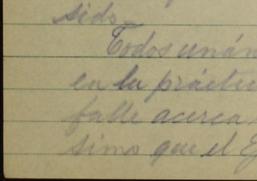 sido.
Todos unán
en la práctic
falle acerca
simo que el Ej